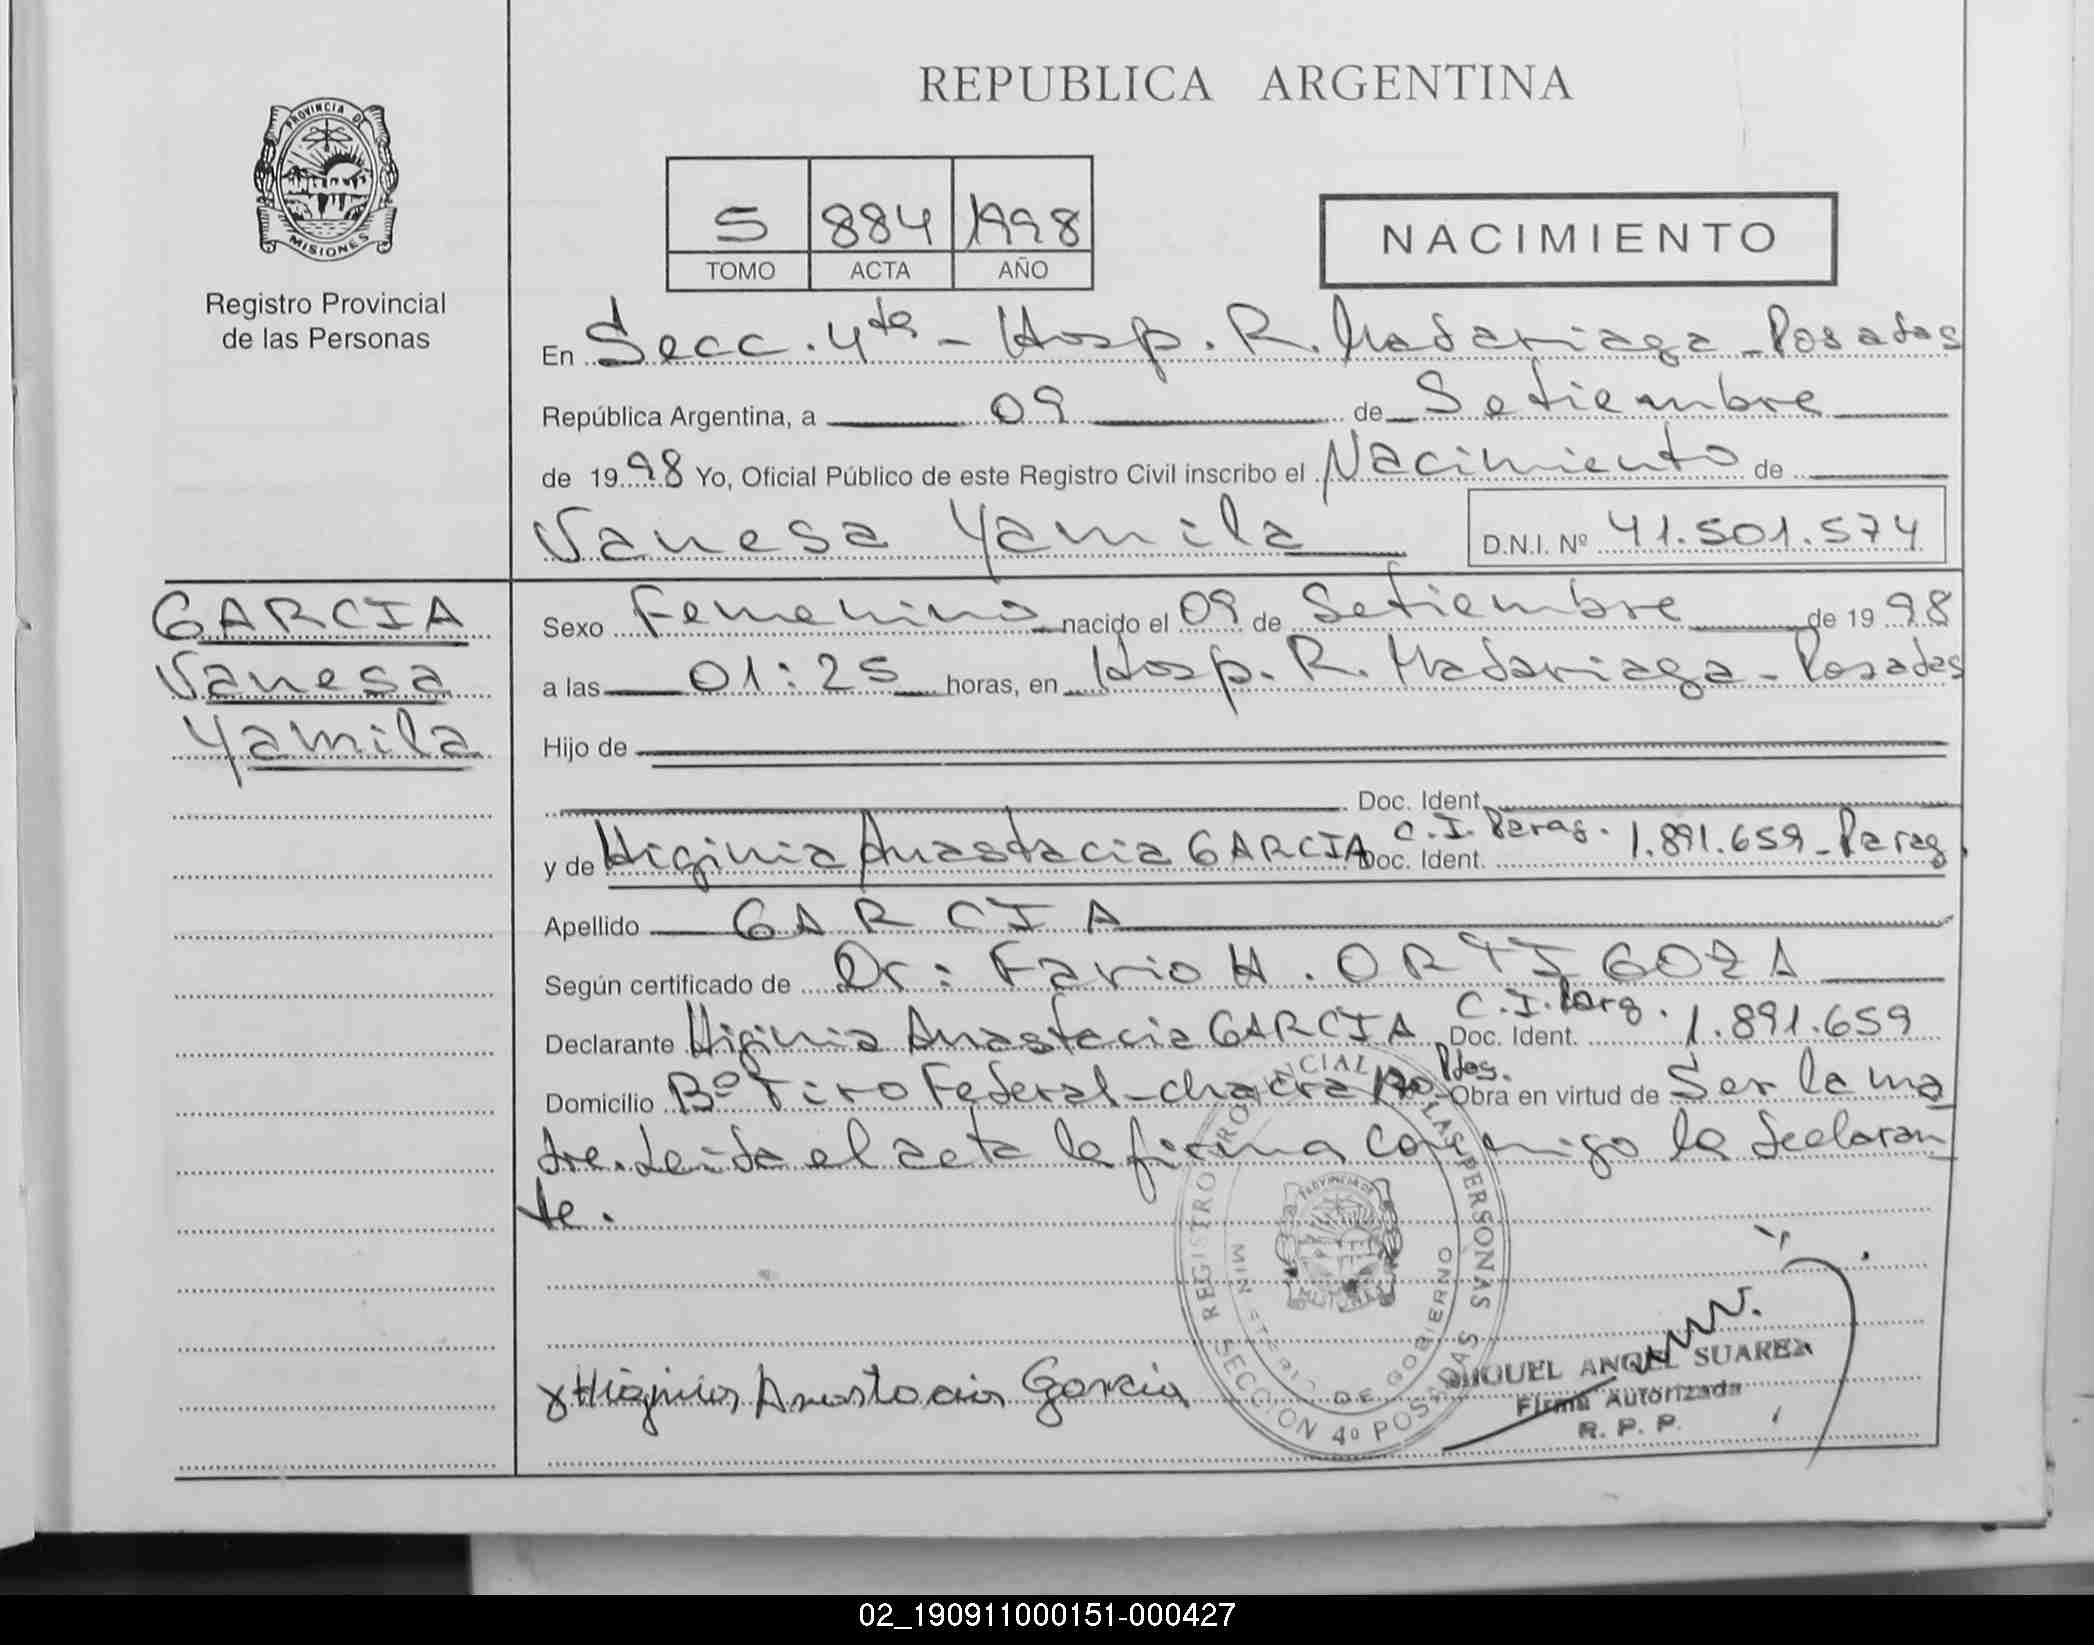 REPUBLICA ARGENTINA
PROVINCIA DE
MISIONES
Registro Provincial
de las Personas
5 884 1998
TOMO ACTA AÑO
NACIMIENTO
En Secc. 4ta - Hosp. R. Madariaga - Posadas
República Argentina, a 09 de Setiembre
de 1998 Yo, Oficial Público de este Registro Civil inscribo el Nacimiento de
Vanesa Yamila D.N.I. Nº 41.501.574
GARCIA
Vanesa
Yamila
Sexo Femenino nacido el 09 de Setiembre de 1998
a las 01:25 horas, en Hosp. R. Madariaga - Posadas
Hijo de
Doc. Ident.
y de Higinia Anastacia GARCIA Doc. Ident. C.I. Parag. 1.891.659 - Parag.
Apellido GARCIA
Según certificado de Dr: Favio H. ORTIGOZA
Declarante Higinia Anastacia GARCIA Doc. Ident. C.I. Parg. 1.891.659
Domicilio Bº Tiro Federal - chacra Pdas. Obra en virtud de Ser la ma
dre. Leida el acta la firma conmigo la declaran
te.
x Higinia Anastacia Garcia
REGISTRO PROVINCIAL DE LAS PERSONAS
MINISTERIO DE GOBIERNO
SECCION 4º POSADAS
PROVINCIA DE
MISIONES
MIGUEL ANGEL SUAREZ
Firma Autorizada
R. P. P.
02_190911000151-000427